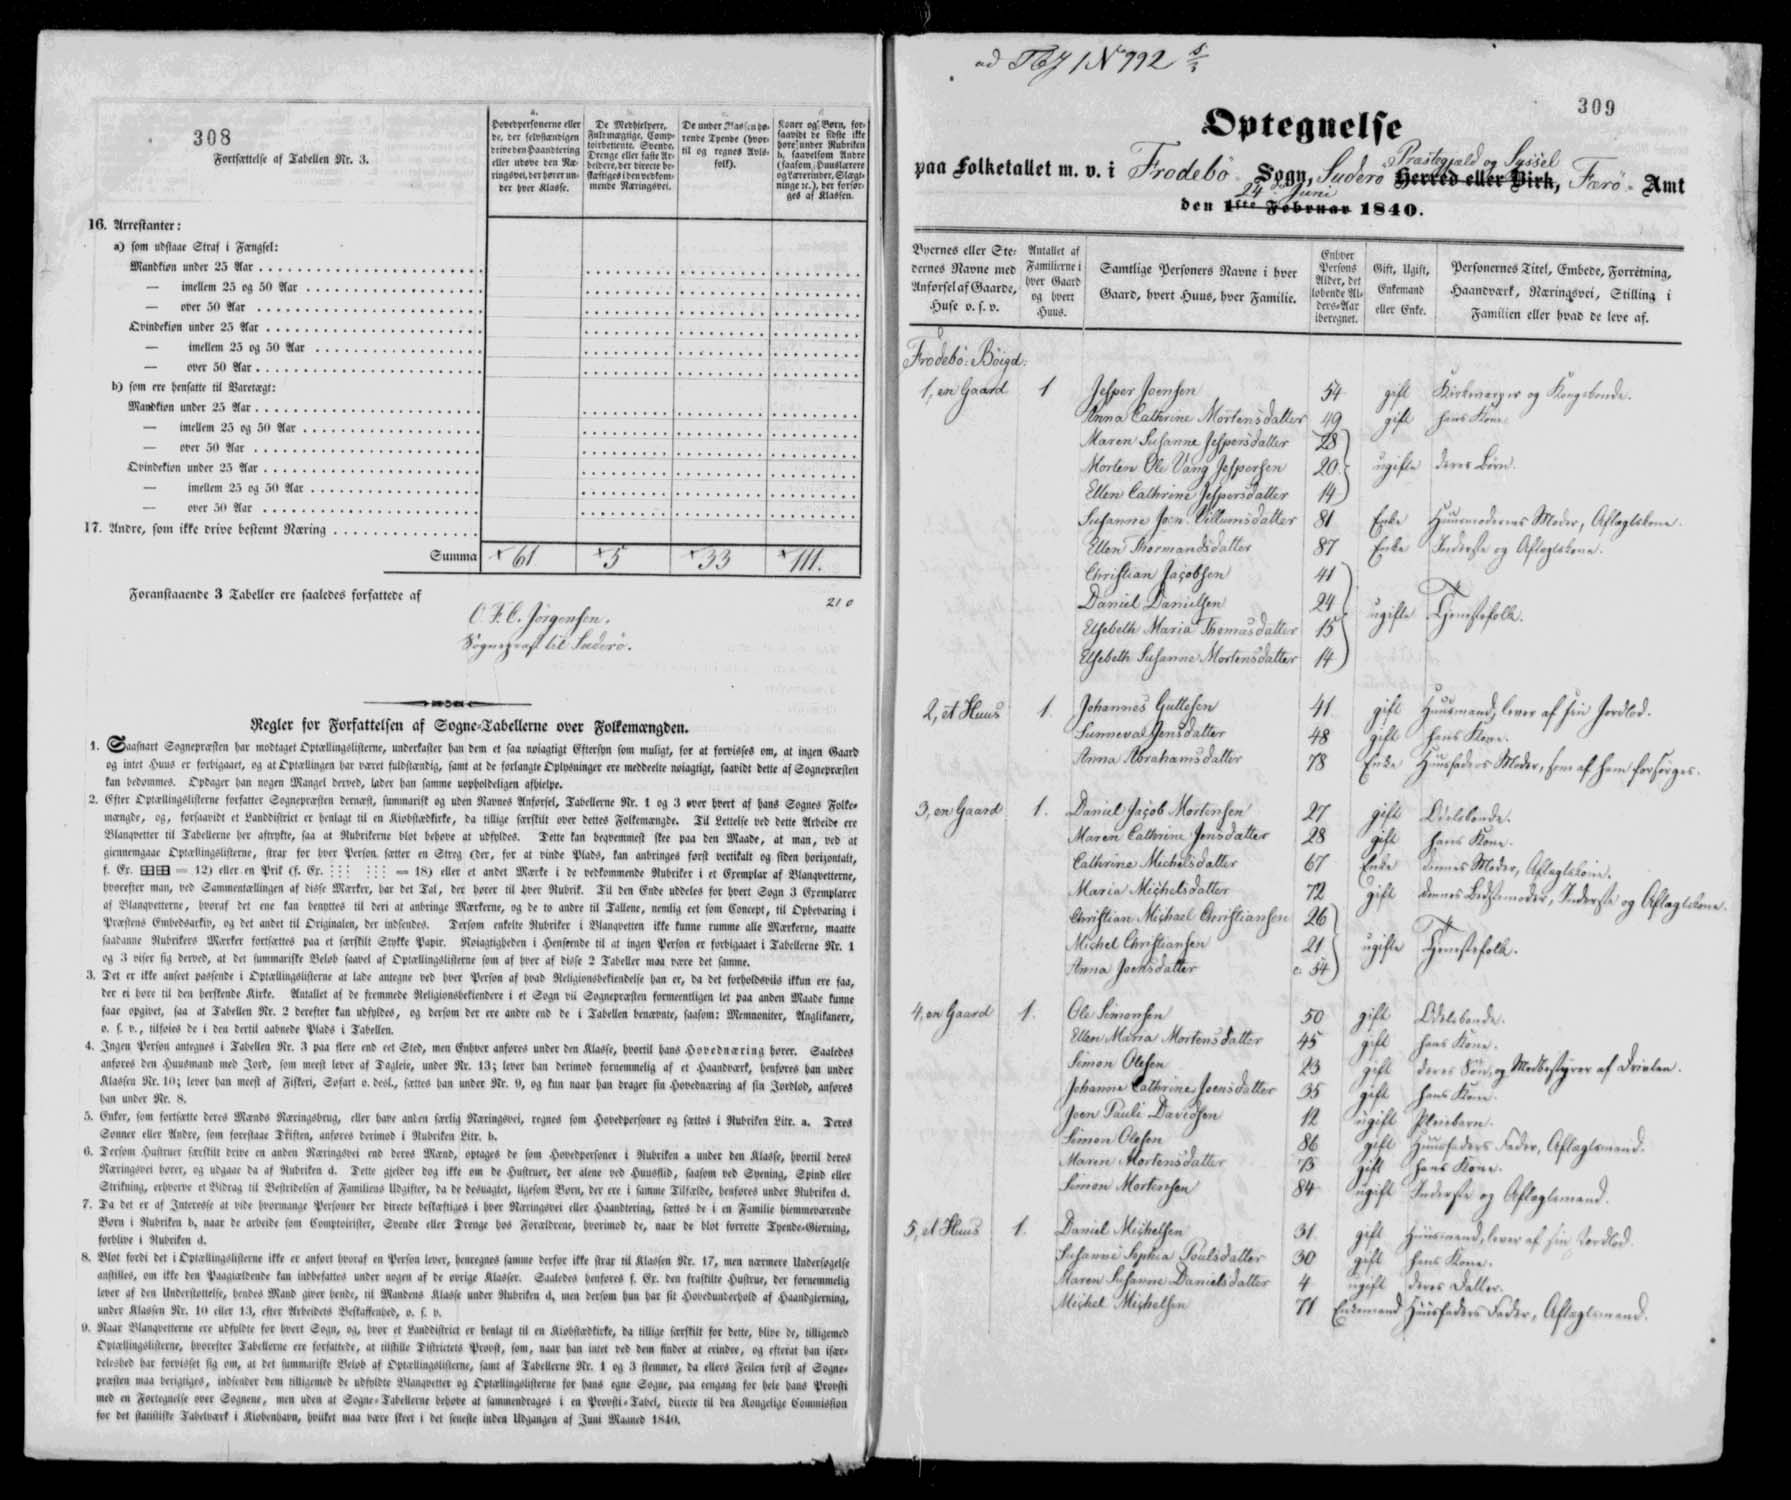 308
Fortsættelse af Tabellen Nr. 3.
a.
Hovedpersonerne eller
de, der selvstændigen
drive den Haandtering
eller udøve den Næ-
ringsvei, der hører un-
der hver Klasse.
De Medhjelpere,
Fuldmægtige, Comp-
toirbetiente, Svende,
Drenge eller faste Ar-
beidere, der directe be-
skæftiges i den vedkom-
mende Næringsvei.
c.
De under Klassen hø-
rende Tyende (hvor-
til og regnes Avls-
folk).
d.
Koner og Børn, for-
saavidt de sidste ikke
høre under Rubriken
b, saavelsom Andre
(saasom Huuslærere
og Lærerinder, Slægt-
ninge ec.), der forsør-
ges af Klassen.
16. Arrestanter:
a) som udstaae Straf i Fængsel:
Mandkiøn under 25 Aar
— imellem 25 og 50 Aar
— over 50 Aar
Qvindekiøn under 25 Aar
— imellem 25 og 50 Aar
— over 50 Aar
b) som ere hensatte til Varetægt:
Mandkiøn under 25 Aar
— imellem 25 og 50 Aar
— over 50 Aar
Qvindekiøn under 25 Aar
— imellem 25 og 50 Aar
— over 50 Aar
17. Andre, som ikke drive bestemt Næring
Summa 61 5 33 111.
Foranstaaende 3 Tabeller ere saaledes forfattede af
210
C. F. C. Jörgensen.
Sognepræst til Suderö.
Regler for Forfattelsen af Sogne-Tabellerne over Folkemængden.
1. Saasnart Sognepræsten har modtaget Optællingslisterne, underkaster han dem et saa nøiagtigt Eftersyn som muligt, for at forvisses om, at ingen Gaard
og intet Huus er forbigaaet, og at Optællingen har været fuldstændig, samt at de forlangte Oplysninger ere meddeelte nøiagtigt, saavidt dette af Sognepræsten
kan bedømmes. Opdager han nogen Mangel derved, lader han samme uopholdeligen afhielpe.
2. Efter Optællingslisterne forfatter Sognepræsten dernæst, summarisk og uden Navnes Anførsel, Tabellerne Nr. 1 og 3 over hvert af hans Sognes Folke-
mængde, og, forsaavidt et Landdistrict er henlagt til en Kiøbstædkirke, da tillige særskilt over dettes Folkemængde. Til Lettelse ved dette Arbeide ere
Blanqvetter til Tabellerne her aftrykte, saa at Rubrikerne blot behøve at udfyldes. Dette kan beqvemmest skee paa den Maade, at man, ved at
giennemgaae Optællingslisterne, strax for hver Person sætter en Streg (der, for at vinde Plads, kan anbringes først vertikalt og siden horizontalt,
f. Ex. = 12) eller en Prik (f. Ex. = 18) eller et andet Mærke i de vedkommende Rubriker i et Exemplar af Blanqvetterne,
hvorefter man, ved Sammentællingen af disse Mærker, har det Tal, der hører til hver Rubrik. Til den Ende uddeles for hvert Sogn 3 Exemplarer
af Blanqvetterne, hvoraf det ene kan benyttes til deri at anbringe Mærkerne, og de to andre til Tallene, nemlig eet som Concept, til Opbevaring i
Præstens Embedsarkiv, og det andet til Originalen, der indsendes. Dersom enkelte Rubriker i Blanqvetten ikke kunne rumme alle Mærkerne, maatte
saadanne Rubrikers Mærker fortsættes paa et særskilt Stykke Papir. Nøiagtigheden i Henseende til at ingen Person er forbigaaet i Tabellerne Nr. 1
og 3 viser sig derved, at det summariske Beløb saavel af Optællingslisterne som af hver af disse 2 Tabeller maa være det samme.
3. Det er ikke anseet passende i Optællingslisterne at lade antegne ved hver Person af hvad Religionsbekiendelse han er, da det forholdsviis ikkun ere faa,
der ei høre til den herskende Kirke. Antallet af de fremmede Religionsbekiendere i et Sogn vil Sognepræsten formeentligen let paa anden Maade kunne
faae opgivet, saa at Tabellen Nr. 2 derefter kan udfyldes, og dersom der ere andre end de i Tabellen benævnte, saasom: Memnoniter, Anglikanere,
o. s. v., tilføies de i den dertil aabnede Plads i Tabellen.
4. Ingen Person antegnes i Tabellen Nr. 3 paa flere end eet Sted, men Enhver anføres under den Klasse, hvortil hans Hovednæring hører. Saaledes
anføres den Huusmand med Jord, som meest lever af Dagleie, under Nr. 13; lever han derimod fornemmelig af et Haandværk, henføres han under
Klassen Nr. 10; lever han meest af Fiskeri, Søfart o. desl., sættes han under Nr. 9, og kun naar han drager sin Hovednæring af sin Jordlod, anføres
han under Nr. 8.
5. Enker, som fortsætte deres Mænds Næringsbrug, eller have anden særlig Næringsvei, regnes som Hovedpersoner og sættes i Rubriken Litr. a. Deres
Sønner eller Andre, som forestaae Driften, anføres derimod i Rubriken Litr. b.
6. Dersom Hustruer særskilt drive en anden Næringsvei end deres Mænd, optages de som Hovedpersoner i Rubriken a under den Klasse, hvortil deres
Næringsvei hører, og udgaae da af Rubriken d. Dette gjelder dog ikke om de Hustruer, der alene ved Huusflid, saasom ved Syening, Spind eller
Strikning, erhverve et Bidrag til Bestridelsen af Familiens Udgifter, da de desuagtet, ligesom Børn, der ere i samme Tilfælde, henføres under Rubriken d.
7. Da det er af Interesse at vide hvormange Personer der directe beskæftiges i hver Næringsvei eller Haandtering, sættes de i en Familie hiemmeværende
Børn i Rubriken b, naar de arbeide som Comptoirister, Svende eller Drenge hos Forældrene, hvorimod de, naar de blot forrette Tyende-Gierning,
forblive i Rubriken d.
8. Blot fordi det i Optællingslisterne ikke er anført hvoraf en Person lever, henregnes samme derfor ikke strax til Klassen Nr. 17, men nærmere Undersøgelse
anstilles, om ikke den Paagiældende kan indbefattes under nogen af de øvrige Klasser. Saaledes henføres f. Ex. den fraskilte Hustrue, der fornemmelig
lever af den Understøttelse, hendes Mand giver hende, til Mandens Klasse under Rubriken d, men dersom hun har sit Hovedunderhold af Haandgierning,
under Klassen Nr. 10 eller 13, efter Arbeidets Beskaffenhed, o. s. v.
9. Naar Blanqvetterne ere udfyldte for hvert Sogn, og, hvor et Landdistrict er henlagt til en Kiøbstædkirke, da tillige særskilt for dette, blive de, tilligemed
Optællingslisterne, hvorefter Tabellerne ere forfattede, at tilstille Districtets Provst, som, naar han intet ved dem finder at erindre, og efterat han især-
deleshed har forvisset sig om, at det summariske Beløb af Optællingslisterne, samt af Tabellerne Nr. 1 og 3 stemmer, da ellers Feilen først af Sogne-
præsten maa berigtiges, indsender dem tilligemed de udfyldte Blanqvetter og Optællingslisterne for hans egne Sogne, paa eengang for hele hans Provsti
med en Fortegnelse over Sognene, men uden at Sogne-Tabellerne behøve at sammendrages i en Provsti-Tabel, directe til den Kongelige Commission
for det statistiske Tabelværk i Kiøbenhavn, hvilket maa være skeet i det seneste inden Udgangen af Juni Maaned 1840.
ad No 992
309
Optegnelse
Præstegjæld og Syssel
paa Folketallet m. v. i Frodebö Sogn, Suderö Herred eller Birk, Færö Amt
24de Juni
den 1ste Februar 1840.
Byernes eller Ste-
dernes Navne med
Anførsel af Gaarde,
Huse o. s. v.
Antallet af
Familierne i
hver Gaard
og hvert
Huus.
Samtlige Personers Navne i hver
Gaard, hvert Huus, hver Familie.
Enhver
Persons
Alder, det
løbende Al-
ders-Aar
iberegnet.
Gift, Ugift,
Enkemand
eller Enke.
Personernes Titel, Embede, Forretning,
Haandværk, Næringsvei, Stilling i
Familien eller hvad de leve af.
Frodebö: Böigd:
1, en Gaard 1 Jesper Joensen 54 gift Kirkeværger og Kongsbonde.
Anna Cathrine Mortensdatter 49 gift hans Kone
Maren Susanne Jespersdatter 28
Morten Ole Vang Jespersen 20 ugifte deres Börn.
Ellen Cathrine Jespersdatter 14
Susanne Joen Villumsdatter 81 Enke Huusmoderens Moder, Aflægtskone.
Ellen Thormandsdatter 87 Enke Inderste og Aflægtskone.
Christian Jacobsen 41
Daniel Danielsen 24 ugifte Tjenestefolk.
Elsebeth Maria Thomasdatter 15
Elsebeth Susanne Mortensdatter 14
2, et Huus 1. Johannes Guttesen 41 gift Huusmand, lever af sin Jordlod.
Sunneva Jensdatter 48 gift hans Kone.
Anna Abrahamsdatter 78 Enke Huusfaders Moder, som af ham forsörges.
3, en Gaard 1. Daniel Jacob Mortensen 27 gift Odelsbonde.
Maren Cathrine Jensdatter 28 gift hans Kone.
Cathrine Michelsdatter 67 Enke dennes Moder, Aflægtskone.
Maria Michelsdatter 72 gift dennes Bedstemoder, Inderste og Aflægtskone.
Christian Michael Christiansen 26
Michel Christiansen 21 ugifte Tjenestefolk.
Anna Joensdatter c. 54
4, en Gaard 1. Ole Simonsen 50 gift Odelsbonde.
Ellen Maria Mortensdatter 45 gift hans Kone.
Simon Olesen 23 gift deres Sön, og Medbestyrer af Drivten.
Johanne Cathrine Joensdatter 35 gift hans Kone.
Joen Pauli Davidsen 12 ugift Pleiebarn.
Simon Olesen 86 gift Huusfaders Fader, Aflægtsmand.
Maren Mortensdatter 75 gift hans Kone.
Simon Mortensen 84 ugift Inderste og Aflægtsmand.
5, et Huus 1. Daniel Michelsen 31 gift Huusmand, lever af sin Jordlod.
Susanne Sophia Poulsdatter 30 gift hans Kone.
Maren Susanne Danielsdatter 4 ugift deres Datter.
Michel Michelsen 71 Enkemand Huusfaders Fader, Aflægtsmand.